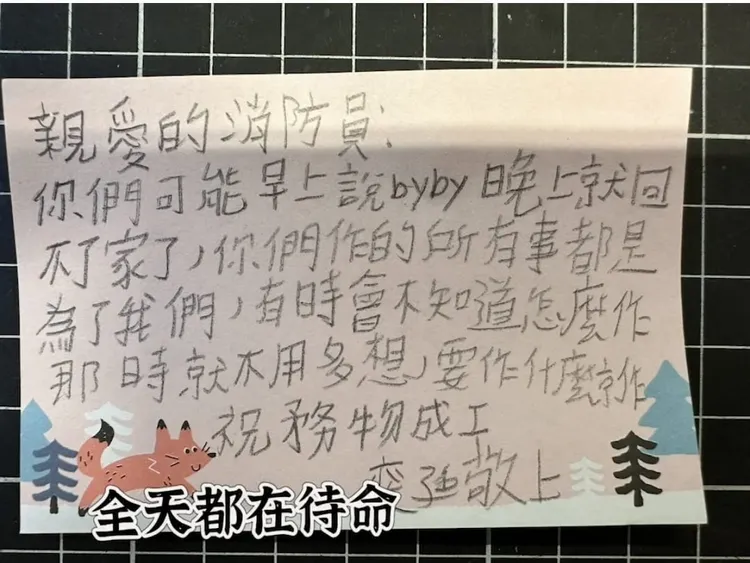 親愛的消防員:
你們可能早上說byby晚上就回
不了家了,你們作的所有事都是
為了我們,有時會不知道怎麼作
那時就不用多想,要作什麼就作
祝務物成工
敬上
全天都在待命